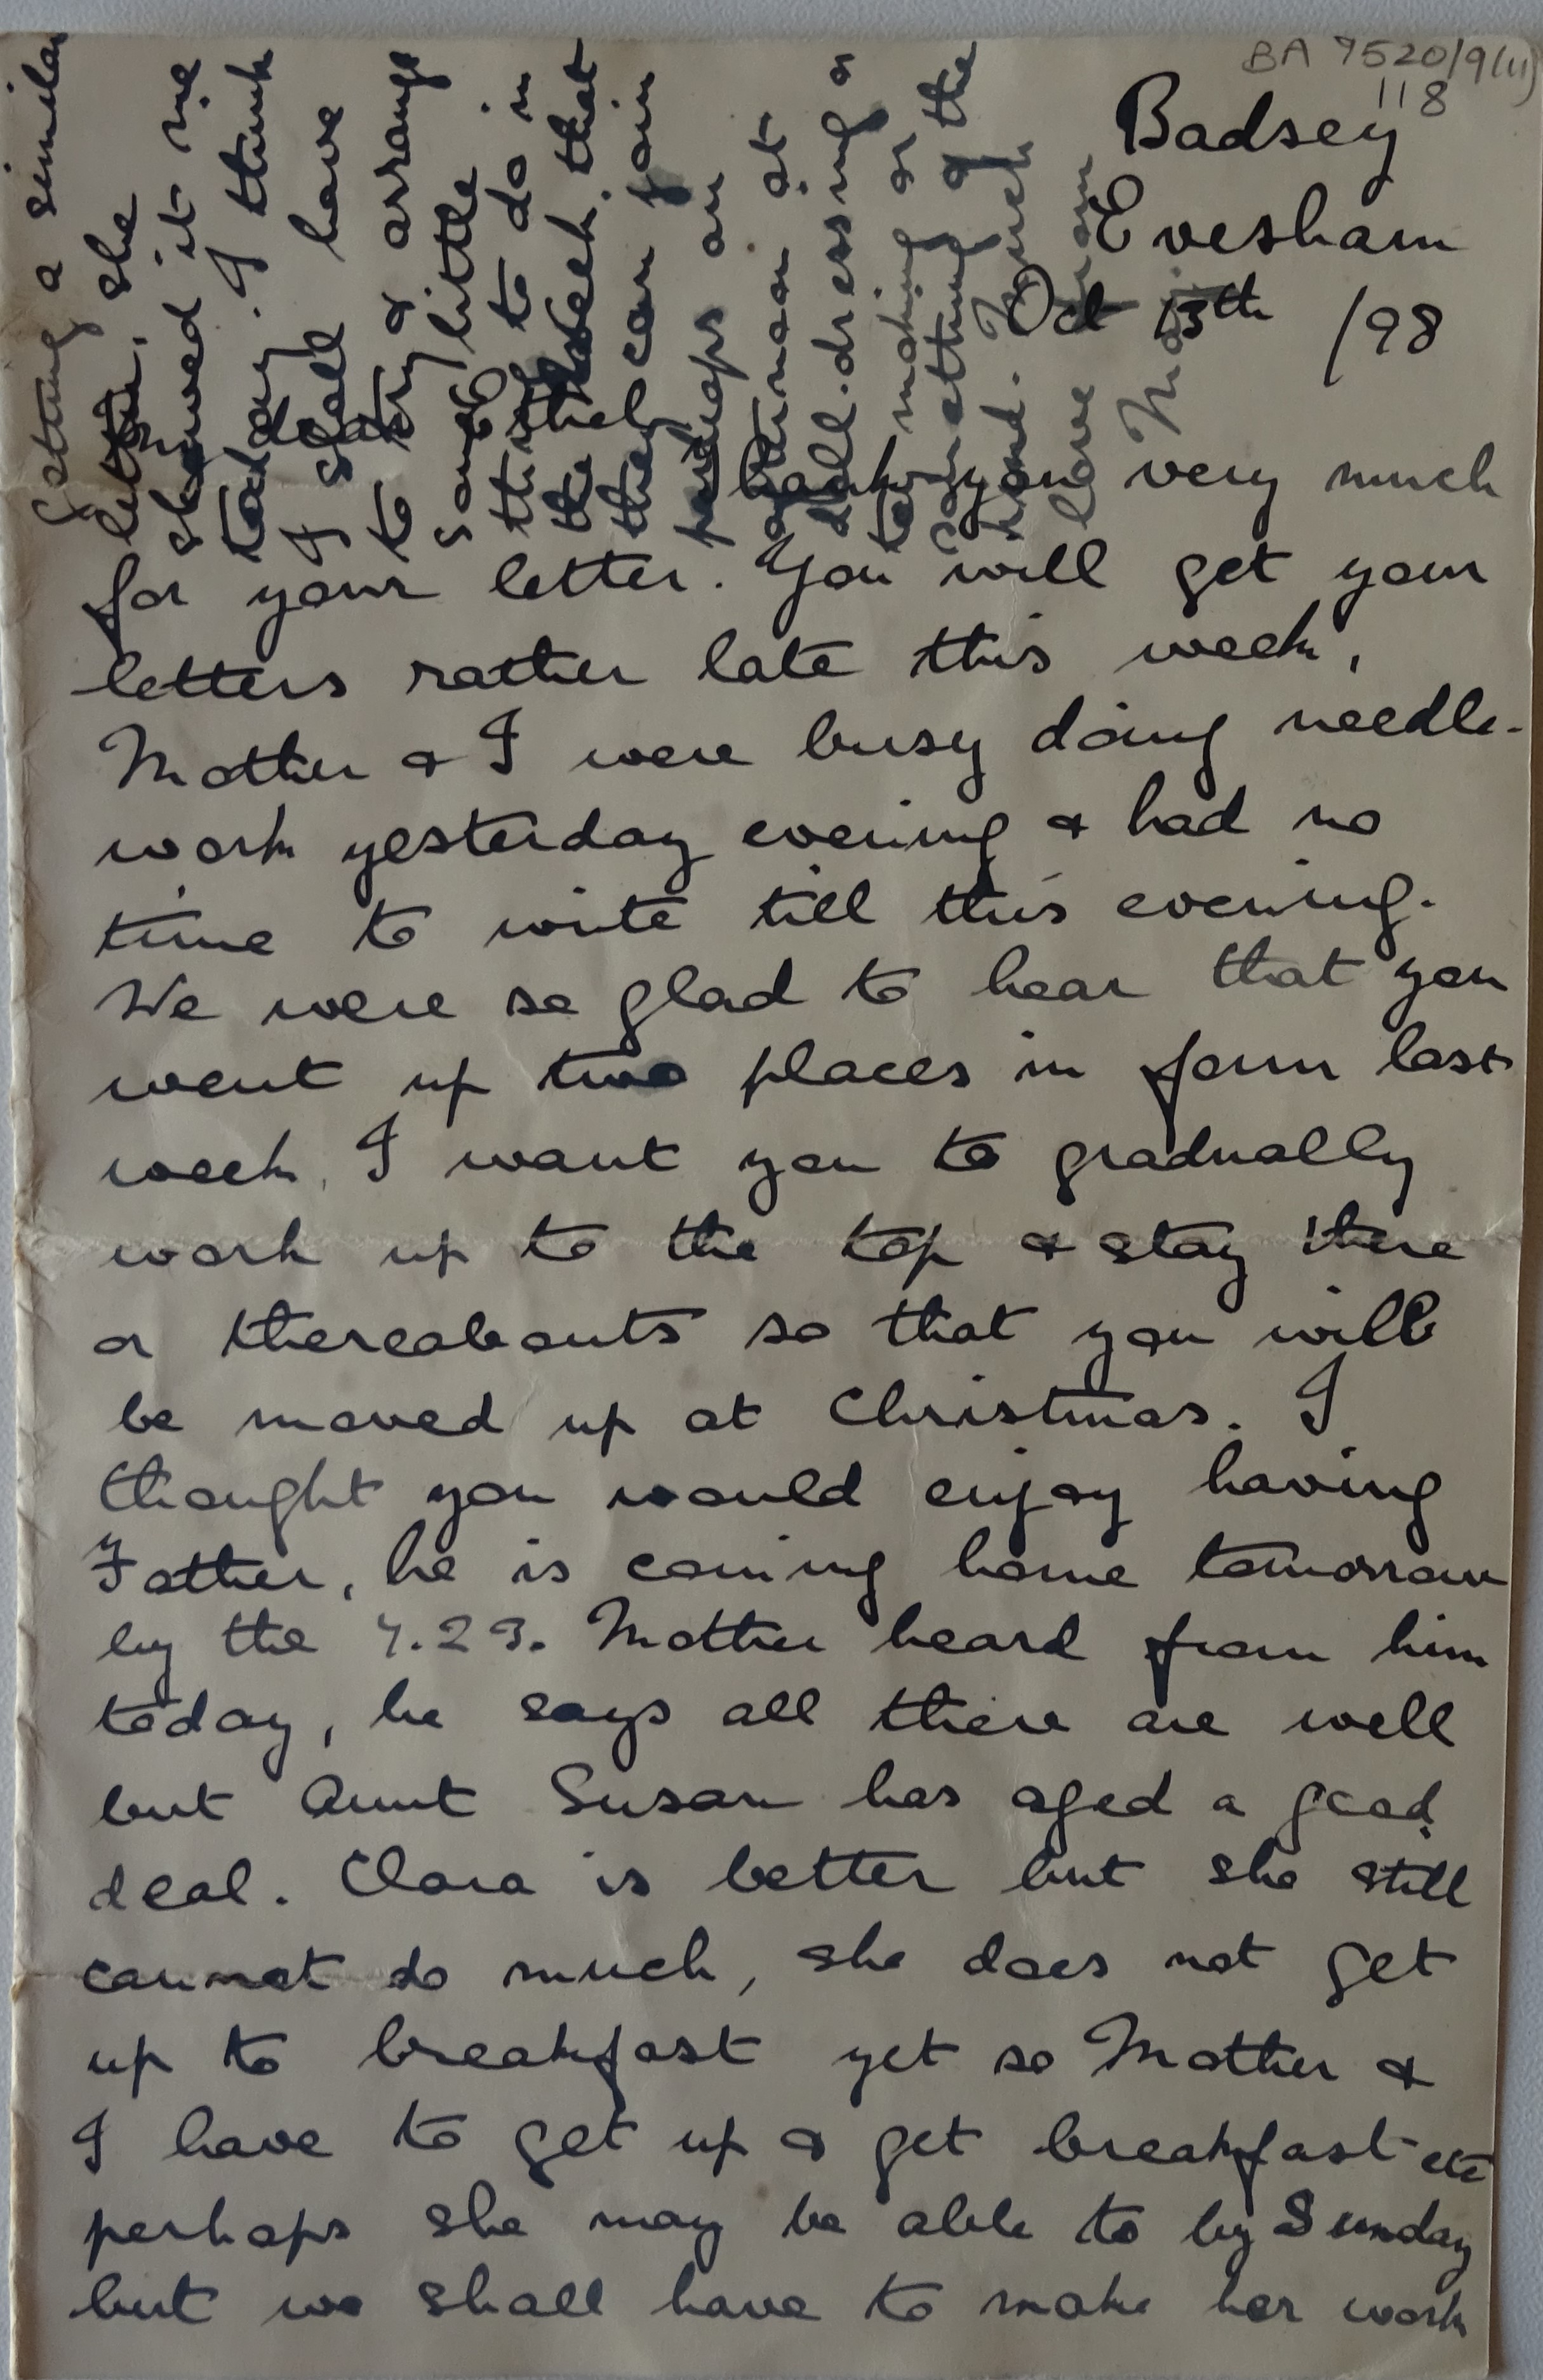 BA 7520/9(11)
118
Badsey
Evesham
Oct 13th /98
My dear Ethel
Thank you very much
for your letter. You will get your
letters rather late this week,
Mother & I were busy doing needle-
work yesterday evening & had no
time to write till this evening.
We were so glad to hear that you
went up two places in form last
week, I want you to gradually
work up to the top & stay there
or thereabouts so that you will
be moved up at Christmas. I
thought you would enjoy having
Father, he is coming home tomorrow
by the 4.23. Mother heard from him
today, he says all there are well
but Aunt Susan has aged a good
deal. Clara is better but she still
cannot do much, she does not get
up to breakfast yet so Mother &
I have to get up & get breakfast etc
perhaps she may be able to by Sunday
but we shall have to make her work
getting a similar
letter, she
showed it me
today. I think
I shall have
to try & arrange
some little
thing to do in
the week that
they can join
perhaps an
afternoon at
doll-dressing or
toy making or
something of the
kind. Much
love from
May.